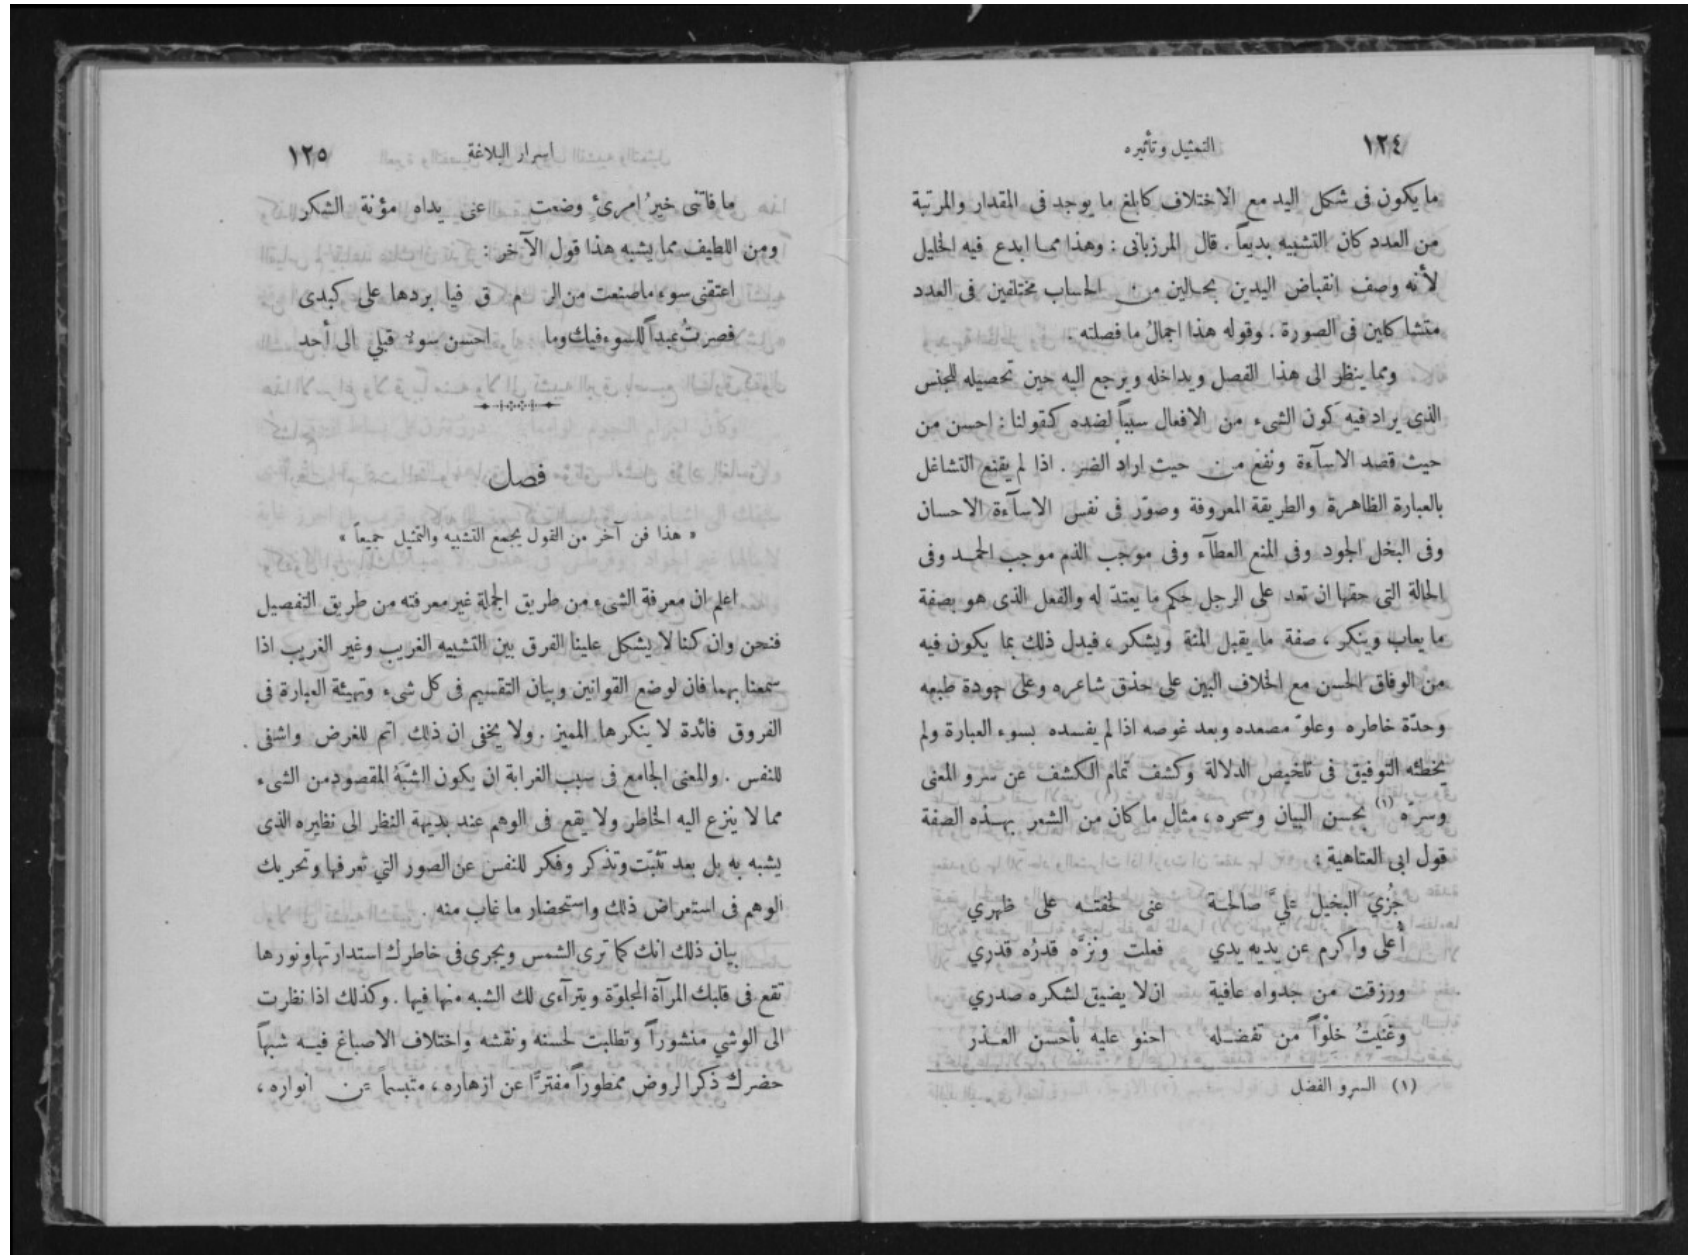 ١٢٤
التمثيل وتأثيره
ما يكون فى شكل اليد مع الاختلاف كابلغ ما يوجد فى المقدار والمرتبة
من العدد كان التشبيه بديعاً . قال المرزبانى : وهذا مما ابدع فيه الخليل
لأنه وصف انقباض اليدين بحالين من الحساب مختلفين فى العدد
متشاكلين فى الصورة . وقوله هذا اجمالُ ما فصلته .
ومما ينظر الى هذا الفصل ويداخله ويرجع اليه حين تحصيله للجنس
الذى يراد فيه كون الشىء من الافعال سبباً لضده كقولنا : احسن من
حيث قصد الاسآءة ونفع من حيث اراد الضر . اذا لم يقنع التشاغل
بالعبارة الظاهرة والطريقة المعروفة وصوّر فى نفس الاسآءة الاحسان
وفى البخل الجود وفى المنع العطآء وفى موجب الذم موجب الحمد وفى
الحالة التى حقها ان تعد على الرجل حكم ما يعتدّ له والفعل الذى هو بصفة
ما يعاب وينكر ، صفة ما يقبل المنة ويشكر ، فيدل ذلك بما يكون فيه
من الوفاق الحسن مع الخلاف البين على حذق شاعره وعلى جودة طبعه
وحدّة خاطره وعلوّ مصعده وبعد غوصه اذا لم يفسده بسوء العبارة ولم
يخطئه التوفيق فى تلخيص الدلالة وكشف تمام الكشف عن سرو المعنى
وسرّه (١) بحسن البيان وسحره ، مثال ما كان من الشعر بهذه الصفة
قول ابى العتاهية :
جُزي البخيل عليَّ صالحة عنى لخفته على ظهري
أعلى واكرم عن يديه يدي فعلت ونزَّه قدرُه قدري
ورزقت من جدواه عافية ان لا يضيق لشكره صدري
وغنيتُ خلْواً من تفضله احنو عليه بأحسن العذر
(١) السرو الفضل
اسرار البلاغة
١٢٥
ما فاتنى خيرُ امرئ وضعت عنى يداه مؤنة الشكر
ومن اللطيف مما يشبه هذا قول الآخر :
اعتقنى سوء ما صنعت من الر م ق فيا بردها على كبدى
فصرتُ عبداً للسوء فيك وما احسن سوء قبلي الى أحد
فصل
« هذا فن آخر من القول يجمع التشبيه والتمثيل جميعاً »
اعلم ان معرفة الشىء من طريق الجملة غير معرفته من طريق التفصيل
فنحن وان كنا لا يشكل علينا الفرق بين التشبيه الغريب وغير الغريب اذا
سمعنا بهما فان لوضع القوانين وبيان التقسيم فى كل شىء وتهيئة العبارة فى
الفروق فائدة لا ينكرها المميز . ولا يخفى ان ذلك اتم للغرض واشفى
للنفس . والمعنى الجامع فى سبب الغرابة ان يكون الشَّبَهُ المقصود من الشىء
مما لا ينزع اليه الخاطر ولا يقع فى الوهم عند بديهة النظر الى نظيره الذى
يشبه به بل بعد تثبّت وتذكر وفكر للنفس عن الصور التي تعرفها وتحريك
الوهم فى استعراض ذلك واستحضار ما غاب منه .
بيان ذلك انك كما ترى الشمس ويجرى فى خاطرك استدارتها ونورها
تقع فى قلبك المرآة المجلوّة ويترآءى لك الشبه منها فيها . وكذلك اذا نظرت
الى الوشي منشوراً وتطلبت لحسنه ونقشه واختلاف الاصباغ فيه شبهاً
حضرك ذكر الروض ممطوراً مفترًّا عن ازهاره ، متبسماً عن انواره ،